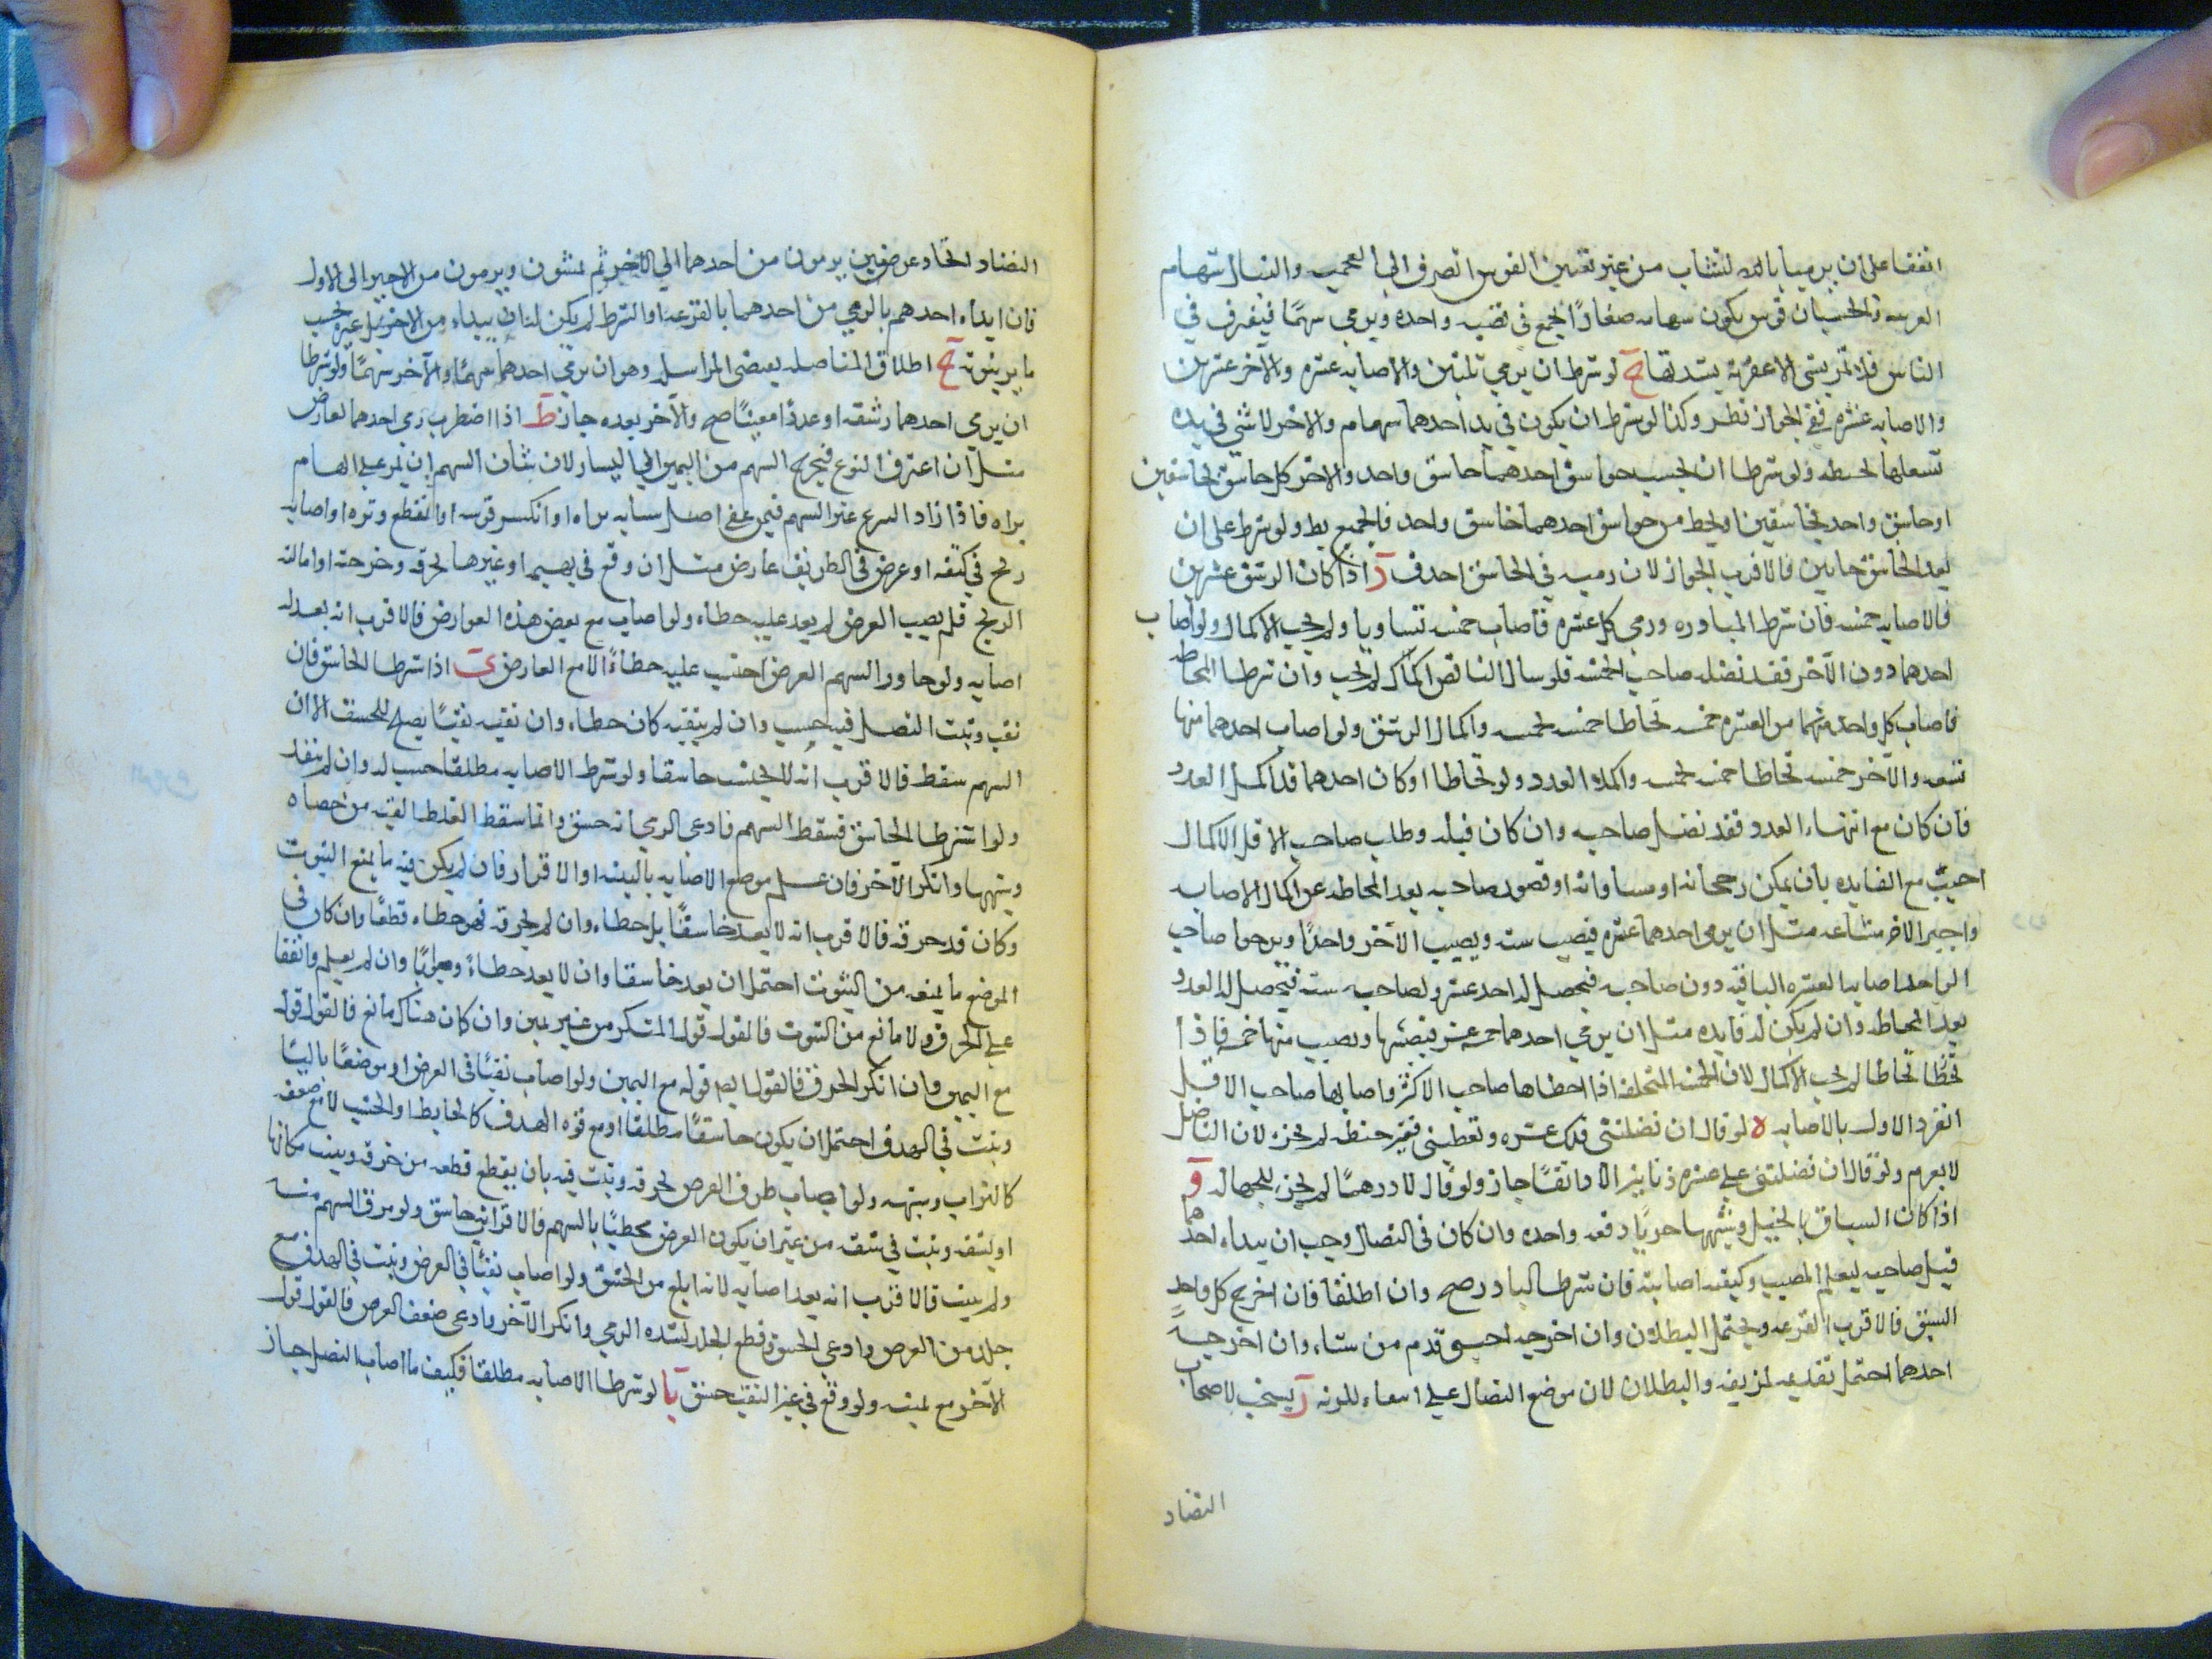 اتفقا على ان يرميا بالنشاب من غير تعيين القوس انصرف الى العجمية والنبال سهام
العربية والحسبان قوس يكون سهامه صغارًا تجمع فى قضيب واحدة ويرمي سهمًا فيتفرق في
الناس فلا تمر بشى الا عقرته لشدتها ح لو شرط ان يرمي ثلثين والاصابه عشره والآخر عشرين
والاصابه عشره ففي الجواز نظر وكذا لو شرط ان يكون في يد احدهما سهام والاخر لا شي في يده
ولو شرطا ان يحسب خواسق احدهما خاسق واحد والاخر كل خاسق بخاسقين
او خاسق واحد بخاسقين او يحط من خواسق احدهما خاسق واحد فالجميع بط ولو شرط على ان
يعد الخاسق حابين فالاقرب الجواز لان رميه في الخاسق احدف ز اذا كان الرشق عشرين
فالاصابه خمسه فان شرط المبادره ورمى كل عشره فاصاب خمسه تساويا ولم يجب الاكمال ولو اصاب
احدهما دون الآخر فقد نضله صاحب الخمسه فلو سال الناقص اكماله لم يجب وان شرطا المحاطه
فاصاب كل واحد منهما من العشره خمسه تحاطا خمسه بخمسه واكمال الرشق ولو اصاب احدهما منها
تسعه والآخر خمسه تحاطا خمسه بخمسه واكملا العدد ولو تحاطا او كان احدهما قد اكمل العدد
فان كان مع انتهاء العدد فقد نضل صاحبه وان كان قبله وطلب صاحب الاقل الاكمال
اجيب مع الفايده بان يمكن رجحانه او مساواته او قصور صاحبه بعد المحاطه عن اكمال الاصابه
واجبر الاخر مثل ان يرمي احدهما عشره فيصيب سته ويصيب الآخر واحدًا ويرجوا صاحب
الواحد اصابه العشره الباقيه دون صاحبه فيحصل له احد عشر ولصاحبه سته فيحصل له العدد
بعد المحاطه وان لم يكن له فايده مثل ان يرمي احدهما خمسه عشر فيصيبها ويصيب منها خمسه فاذا
تحاطا لم يجب الاكمال لان الخمسه المتخلفه اذا اخطاها صاحب الاكثر واصابها صاحب الاقل
انفرد الاول بالاصابه ه لو قال ان نضلتنى فلك عشره وتعطينى قفيز حنطه لم يجز لان الناضل
لا يغرم ولو قال ان نضلتنى على عشره دنانير الا دانقًا جاز ولو قال لا درهمًا لم يجز للجهاله و
اذا كان السباق بالخيل وشبهها جريًا دفعه واحده وان كان فى النضال وجب ان يبداء احدهما
قبل صاحبه ليعلم المصيب وكيفيه اصابته فان شرطا البادر صح وان اطلقا فان اخرج كل واحد
السبق فالاقرب القرعه ويحتمل البطلان وان اخرجه اجنبي قدم من شاء وان اخرجه
احدهما احتمل تقديمه لمزيته والبطلان لان موضع النضال على استواء المونه ز يستحب لاصحاب
النضال
النضال اتخاذ غرضين يرمون من احدهما الي الآخر ثم يمشون ويرمون من الاخير الى الاول
فان ابداء احدهم بالرمي من احدهما بالقرعه او الشرط لم يكن لثان يبداء من الآخر بل غيره بحسب
ما يرتبونه ح اطلاق المناضله يقتضى المراسله وهو ان يرمي احدهما سهمًا والآخر سهمًا ولو شرطا
ان يرمي احدهما رشقه او عددًا معينًا صح والآخر بعده جاز ط اذا اضطرب رمي احدهما لعارض
مثل ان اغرق النزع فخرج السهم من اليمين الي اليسار لان شان السهم ان يمر على ابهام
يراه فاذا زاد النزع عثر السهم فيمر على اصل سبابه يراه او انكسر قوسه او انقطع وتره او اصابه
ريح في كتفه او عرض فى الطريق عارض مثل ان وقع في بهيمه او غيرها لحرقه وخرجته او امالته
الريح فلم يصيب الغرض لم يعد عليه خطاء ولو اصاب مع بعض هذه العوارض فالاقرب انه يعد له
اصابه ولو جاوز السهم الغرض احتسب عليه خطاءً الا مع العارض ى اذا شرطا الخاسق فان
نقب وثبت النصل فيه حسب وان لم ينقبه كان خطاء وان نقبه نقبًا يصلح للخسق الا ان
السهم سقط فالاقرب انه لا يحتسب خاسقا ولو شرط الاصابه مطلقا حسب له وان لم ينفذ
ولو اشترطا الخاسق فسقط السهم فادعى الرمي انه خسق وانما سقط لغلظ لقيه من حصاه
وشبهها وانكر الآخر فان علم موضع الاصابه بالبينه او الاقرار فان لم يكن فيه ما يمنع الثبوت
وكان قد خرقه فالاقرب انه لا يعد خاسقًا بل خطاء وان لم يخرقه فهو خطاء قطعًا وان كان في
الموضع ما يمنعه من الثبوت احتمل ان يعد خاسقا وان لا يعد خطاءً وان لم يعلم واتفقا
على الخرق ولا مانع من الثبوت فالقول قول المنكر من غير يمين وان كان هناك مانع فالقول قوله
مع اليمين وان انكر الخرق فالقول ايضا قوله مع اليمين ولو اصاب نقبًا فى الغرض او موضعًا باليًا
وثبت في الهدف احتمل ان يكون خاسقًا مطلقا او مع قوه الهدف كالحايط او الخشب لا مع ضعفه
كالتراب وشبهه ولو اصاب طرف الغرض لخرقه وثبت فيه بان يقطع قطعه من خرقه ويثبت مكانها
او يشقه ويثبت في شقه من غير ان يكون الغرض محيطًا بالسهم فالاقرب انه خاسق ولو مرق السهم منه
ولم يثبت فالاقرب انه يعد اصابه لانه ابلغ من الخسق ولو اصاب نقبًا في الغرض وثبت في الهدف مع
جلد من الغرض وادعى الخسق وقطع الجلد لشده الرمي وانكر الآخر وادعى ضعف الغرض فالقول قول
الآخر مع يمينه ولو وقع في غير النقب خسق يا لو شرطا الاصابه مطلقا فكيف ما اصاب النصل جاز